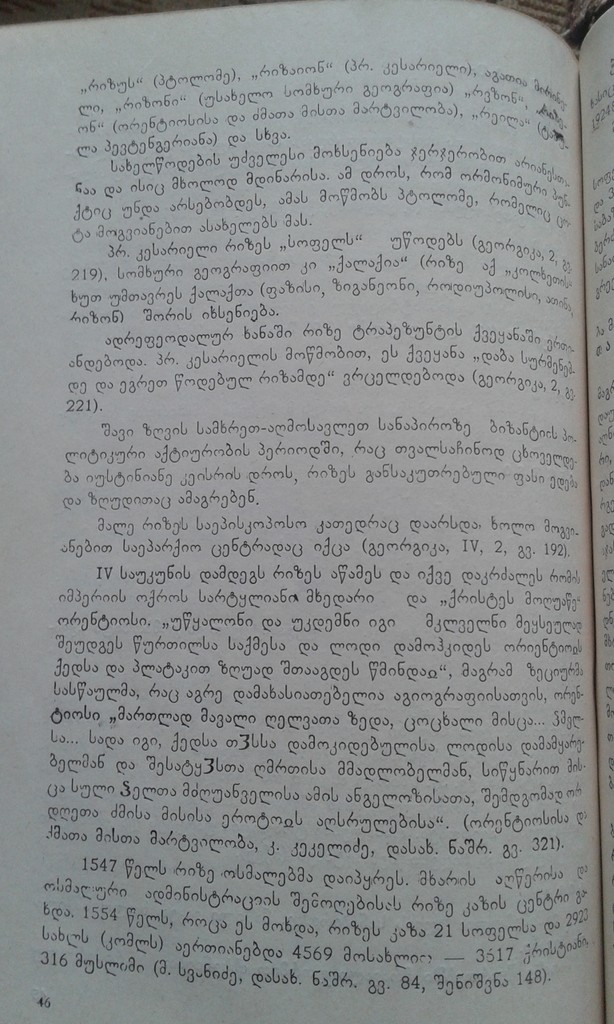 „რიზუს“ (პტოლომე), „რიზაიონ“ (პრ. კესარიელი), აგათია
ლი, „რიზონი“ (უსახელო სომხური გეოგრაფია) „რვზონ“,
ონ“ (ორენტიოსისა და ძმათა მისთა მარტვილობა), „რეილა“
ლა პევტენგერიანა) და სხვა.
სახელწოდების უძველესი მოხსენიება ჯერჯერობით არიანეს
ჩაა და ისიც მხოლოდ მდინარისა. ამ დროს, რომ ორმონიმური პუნ-
ქტიც უნდა არსებობდეს, ამას მოწმობს პტოლომე, რომელიც ცო-
ტა მოგვიანებით ასახელებს მას.
პრ. კესარიელი რიზეს „სოფელს“ უწოდებს (გეორგიკა, 2, გვ.
219), სომხური გეოგრაფიით კი „ქალაქია“ (რიზე აქ „კოლხეთის
ხუთ უმთავრეს ქალაქთა (ფაზისი, ზიგანეონი, როდიუპოლისი, ათინა,
რიზონ) შორის იხსენიება.
ადრეფეოდალურ ხანაში რიზე ტრაპეზუნტის ქვეყანაში ერთი-
ანდებოდა. პრ. კესარიელის მოწმობით, ეს ქვეყანა „დაბა სურმენემ-
დე და ეგრეთ წოდებულ რიზამდე“ ვრცელდებოდა (გეორგიკა, 2, გვ.
221).
შავი ზღვის სამხრეთ-აღმოსავლეთ სანაპიროზე ბიზანტიის პო-
ლიტიკური აქტიურობის პერიოდში, რაც თვალსაჩინოდ ცხოველდე-
ბა იუსტინიანე კეისრის დროს, რიზეს განსაკუთრებული ფასი ედება
და ზღუდითაც ამაგრებენ.
მალე რიზეს საეპისკოპოსო კათედრაც დაარსდა, ხოლო მოგვი-
ანებით საეპარქიო ცენტრადაც იქცა (გეორგიკა, IV, 2, გვ. 192).
IV საუკუნის დამდეგს რიზეს აწამეს და იქვე დაკრძალეს რომის
იმპერიის ოქროს სარტყლიანი მხედარი და „ქრისტეს მოღუაწე“
ორენტიოსი. „უწყალონი და უკდემნი იგი მკლველნი მეყსეულად
შეუდგეს წურთილსა საქმესა და ლოდი დამოჰკიდეს ორიენტიოის
ქედსა და პლატაკით ზღუად შთააგდეს წმინდაჲ“, მაგრამ ზეციურმა
სასწაულმა, რაც აგრე დამახასიათებელია აგიოგრაფიისათვის, ორენ-
ტიოსი „მართლად მავალი ღელვათა ზედა, ცოცხალი მისცა... ჴმელ-
სა... სადა იგი, ქედსა თჳსსა დამოკიდებულისა ლოდისა დამამყარე-
ბელმან და შესატყჳსთა ღმრთისა მმადლობელმან, სიწყნარით მის-
ცა სული ჴელთა მძღუანველისა ამის ანგელოზისათა, შემდგომად ორ
დღეთა ძმისა მისისა ეროტოჲს აღსრულებისა“. (ორენტიოსისა და
ძმათა მისთა მარტვილობა, კ. კეკელიძე, დასახ. ნაშრ. გვ. 321).
1547 წელს რიზე ოსმალებმა დაიპყრეს. მხარის აღწერისა და
ოსმალური ადმინისტრაციის შემოღებისას რიზე კაზის ცენტრი გა-
ხდა. 1554 წელს, როცა ეს მოხდა, რიზეს კაზა 21 სოფელსა და 2920
სახლს (კომლს) აერთიანებდა 4569 მოსახლით — 3617 ქრისტიანი,
316 მუსლიმი (მ. სვანიძე, დასახ. ნაშრ. გვ. 84, შენიშვნა 148).
46